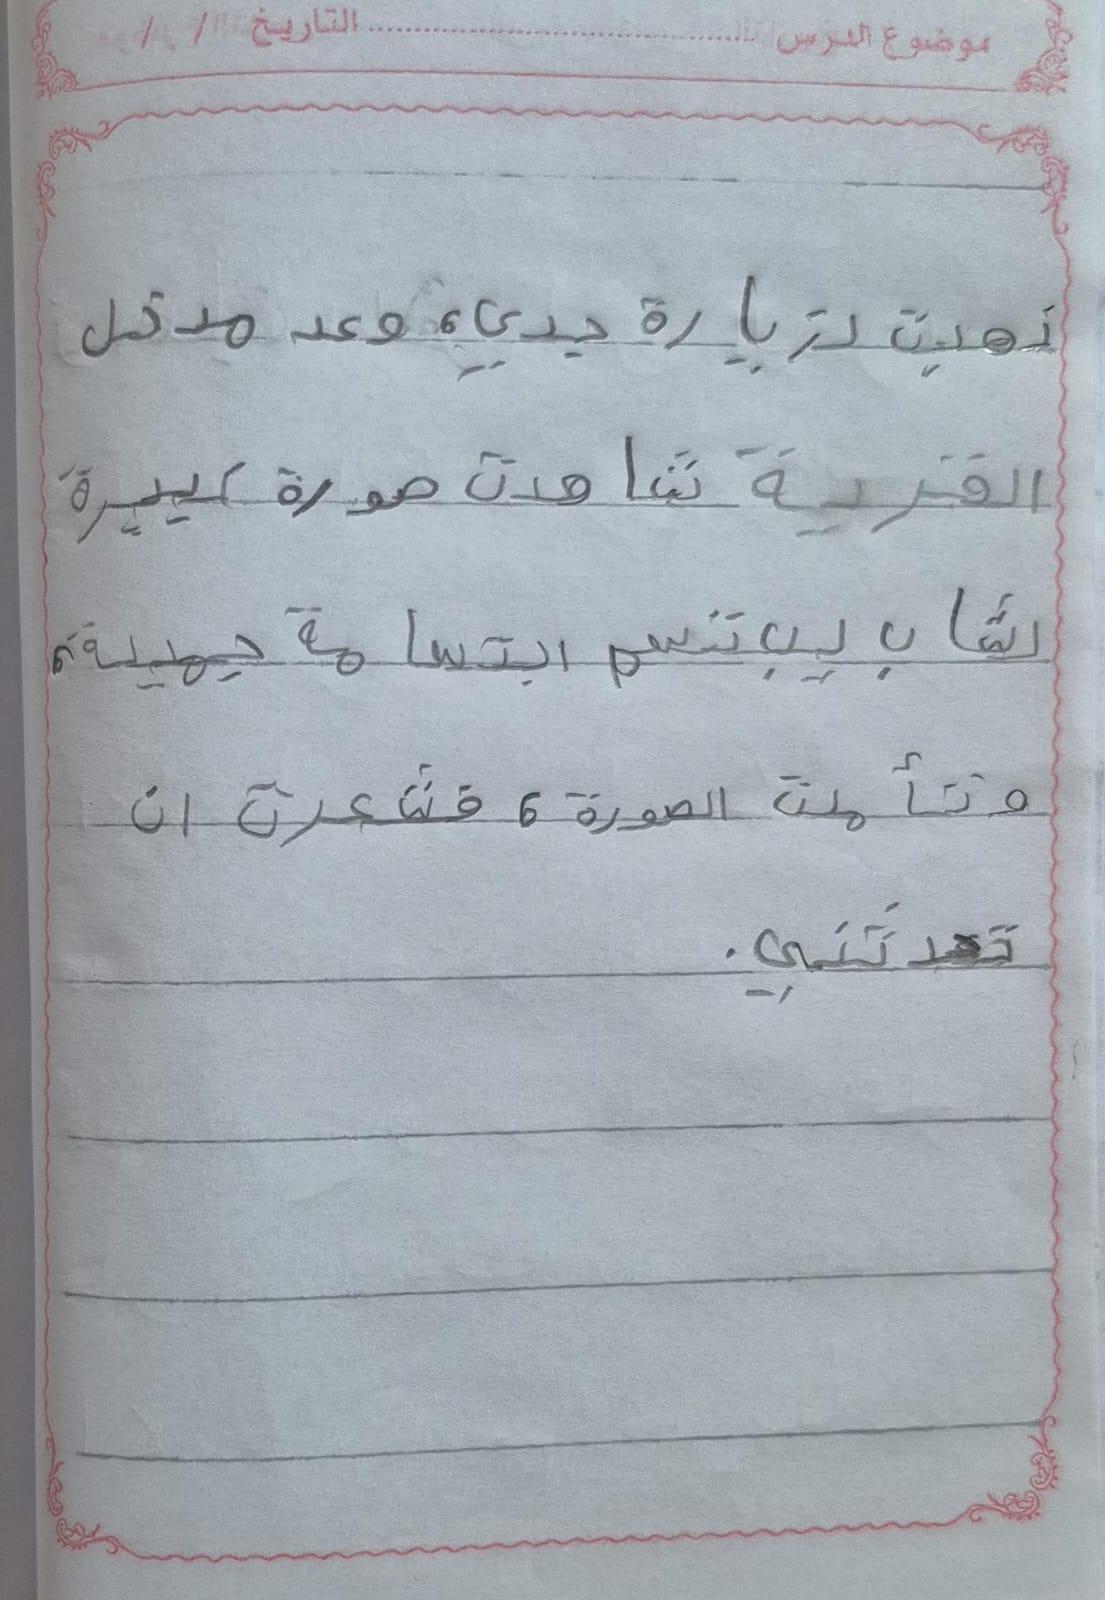 موضوع الدرس ........................ التاريخ / /
ذهبت لزيارة جدي، وعد مدخل
القرية شاهدت صورة كبيرة
لشاب يبتسم ابتسامة جميلة،
وتأملت الصورة، فشعرت ان
تحدثني.